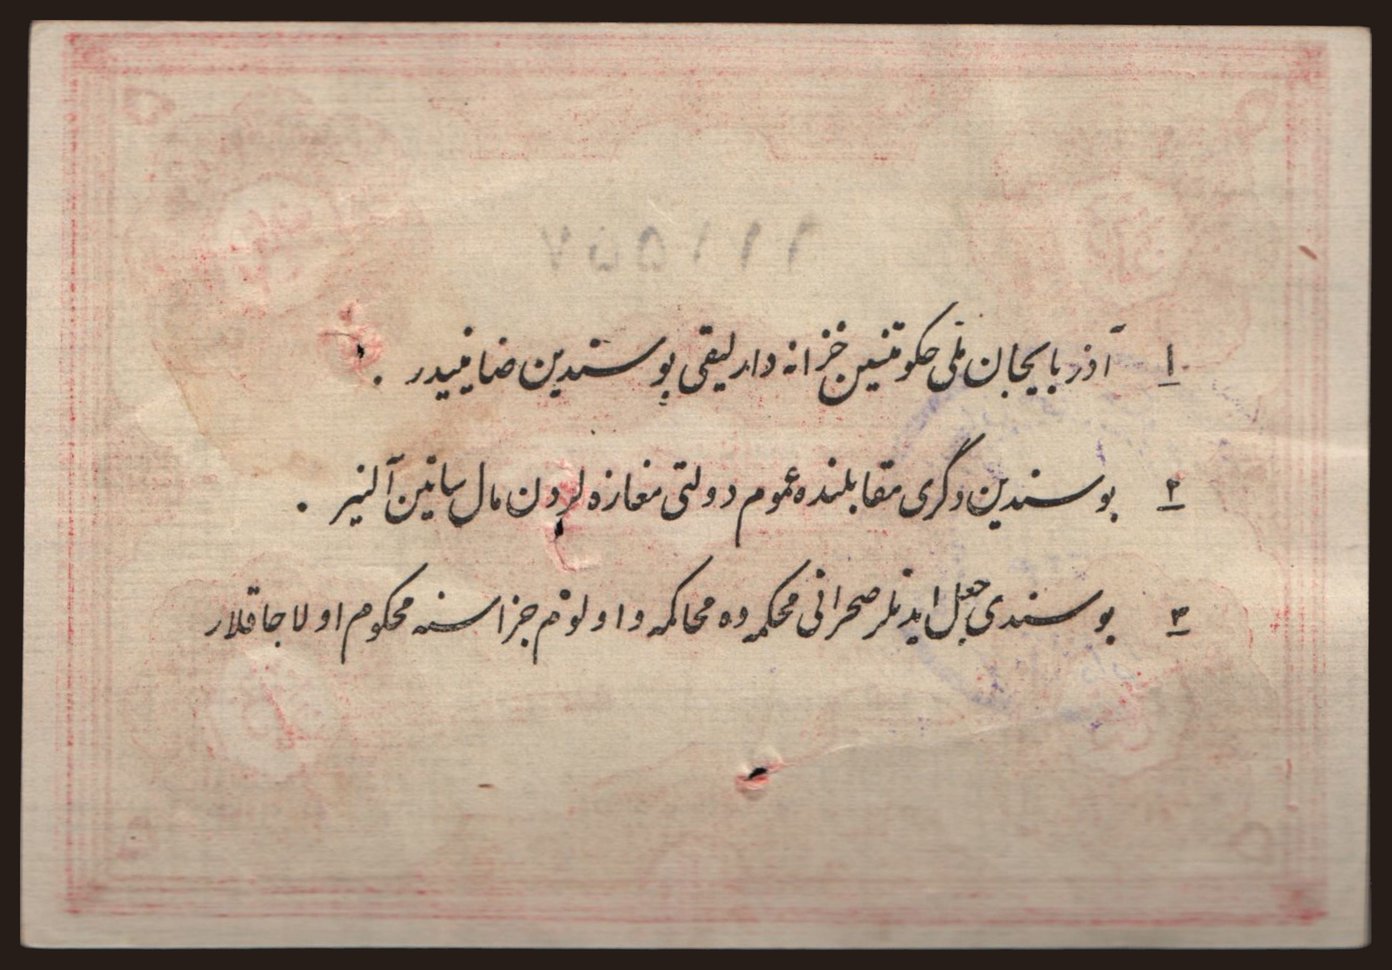 ۱۱۱۵۵۷
۱ آذربایجان ملی حکومتنین خزانه دارلیقی بوسندین ضامنیدر .
۲ بوسندین دگری مقابلنده عموم دولتی مغازه لردن مال ساتین آلنیر .
۳ بوسندی جعل ایدنلر صحرائی محکمه ده محاکمه و اولوم جزاسنه محکوم اولاجاقلار